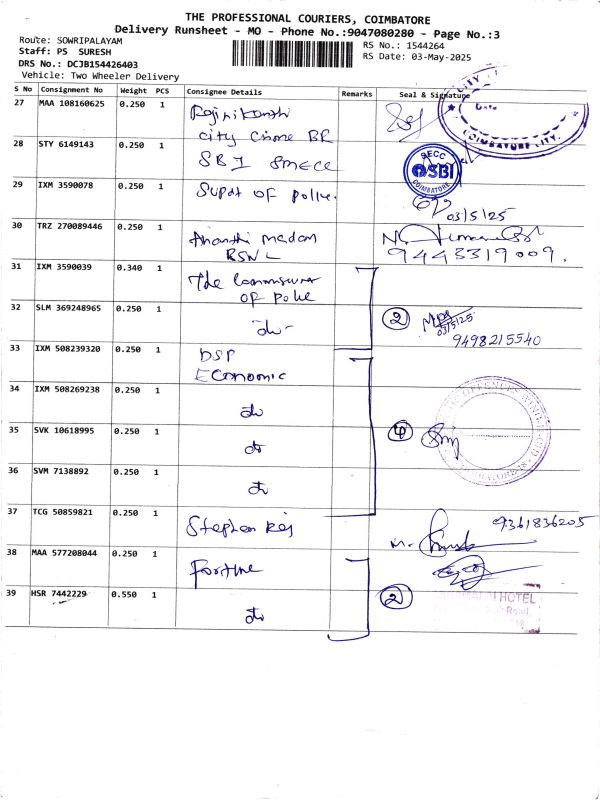 THE PROFESSIONAL COURIERS, COIMBATORE
Delivery Runsheet - MO - Phone No.:9047080280 - Page No.:3
Route: SOWRIPALAYAM
RS No.: 1544264
Staff: PS SURESH
RS Date: 03-May-2025
DRS No.: DCJB154426403
Vehicle: Two Wheeler Delivery
S No Consignment No Weight PCS Consignee Details Remarks Seal & Signature
27 MAA 108160625 0.250 1
City Crime BR
CITY
Date
COIMBATORE CITY.
28 STY 6149143 0.250 1 SBI SMECC
SECC
SBI
COIMBATORE
29 IXM 3590078 0.250 1 Supdt OF police.
03/5/25
30 TRZ 270089446 0.250 1 Ananthi madam
BSNL
9443319009.
31 IXM 3590039 0.340 1 The Commissioner
OF Police
32 SLM 369248965 0.250 1 -do-
2
03/5/25
9498215540
33 IXM 508239320 0.250 1 DSP
Economic
34 IXM 508269238 0.250 1 do
35 SVK 10618995 0.250 1 do
4
OFFENCES WING
36 SVM 7138892 0.250 1 do
37 TCG 50859821 0.250 1 Stephen Raj
9361836205
38 MAA 577208044 0.250 1 Fortune
39 HSR 7442229 0.550 1 do
2
HOTEL
Road